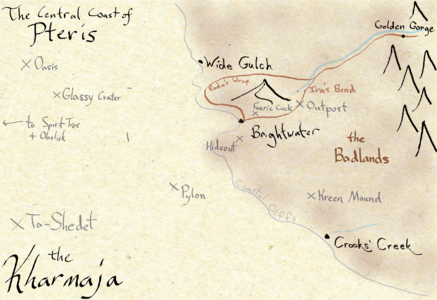 The Central Coast of
Pteris
Golden Gorge
Oasis
Wide Gulch
Glassy Crater
Radha's Wrap
Ira's Bend
Faerie Circle
Outpost
← to Spirit Tree
+ Obelisk
Brightwater
Hideout
the
Badlands
Pylon
Coastal Cliffs
Kreen Mound
To-Shedet
Crooks' Creek
the
Kharmaja